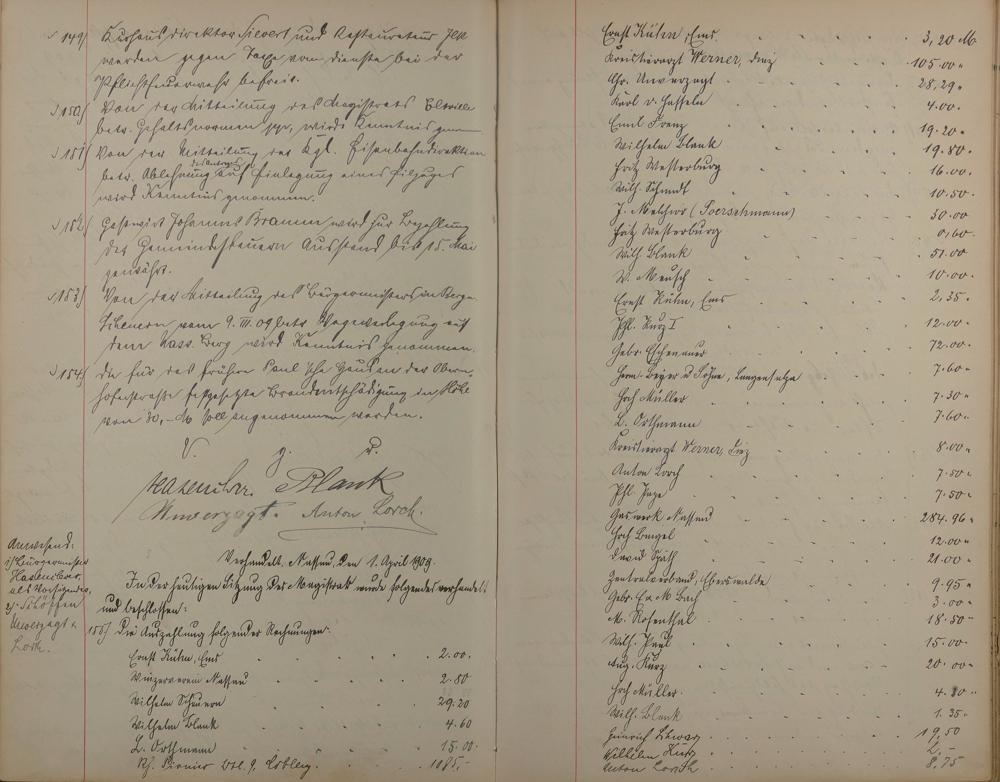 149/ Kurhausdirektor Sievert und Restaurateur
werden gegen Taxe vom Dienste bei der
Pflichtfeuerwehr befreit.
150/ Von der Mitteilung des Magistrats Eltville
betr. Gehaltsnormen pp, wird Kenntnis genom
151/ Von der Mitteilung der Kgl. Eisenbahndirektion
betr. Ablehnung des Antrags auf Einlegung eines Eilzuges
wird Kenntnis genommen.
152/ Gastwirt Johannes Bramm wird zur Bezahlung
der Gemeindesteuern Ausstand bis 15. Mai
gewährt.
153/ Von der Mitteilung des Bürgermeisters in Berg-
vom 9. III. 09 betr. Wegeverlegung auf
dem Nass. Berg wird Kenntnis genommen.
154/ Die für das frühere Paul'sche Haus in der Obern-
hoferstraße festgesetzte Brandentschädigung in Höhe
von 30,- M soll angenommen werden.
V. g. u.
Hasenclever. Blank
Unverzagt. Anton Lorch.
Anwesend:
1/ Bürgermeister
Hasenclever,
als Vorsitzender,
2/ Schöffen
Unverzagt u
Lorch.
Verhandelt. Nassau, den 1. April 1909.
In der heutigen Sitzung des Magistrats wurde folgendes verhandelt
und beschlossen:
155/ Die Auszahlung folgender Rechnungen:
Ernst Kühn, Ems 2.00.
Winzerverein Nassau 2.80
Wilhelm Scheuern 29.20
Wilhelm Blank 4.60
L. Orthmann 15.00.
Kg. Pionier Btl. 9, Coblenz. 1085,-
Ernst Kühn, Ems. 3,20 M
Kreistierarzt Werner, Diez 105.00 "
Chr. Unverzagt 28,29 "
Karl v. Hasseln 4.00.
Emil Franz 19.20 "
Wilhelm Blank 19.80 "
Fritz Westerburg 16.00.
Wilh. Schmidt 10.50.
J. Melchior (Poerschmann) 30.00
Fritz Westerburg 0,60.
Wilh. Blank 51.00
W. Meusch 10.00.
Ernst Kühn, Ems 2.35.
Phl. Kurz I 12.00 "
Gebr. Eschenauer 72.00 "
Herm. Beyer u Söhne, Langensalza 7.60 "
Hch Müller 7.30 "
L. Orthmann 7.60 "
Kreistierarzt Werner, Diez 8.00 "
Anton Lorch 7.50 "
Phl. 7.50 "
Gaswerk Nassau 284.96 "
Hch 12.00 "
David Späth 21.00 "
Zentralverband, Eberswalde 9.95 "
Gebr. E u M Bach 3.00 "
M. Rosenthal 18.50 "
Wilh. Paul 15.00 "
Aug. Kurz 20.00 "
Hch Müller. 4.30 "
Wilh. Blank 1.35 "
Heinrich 19,50
Wilhelm Kurz 2.-
Anton Lorch 8,75